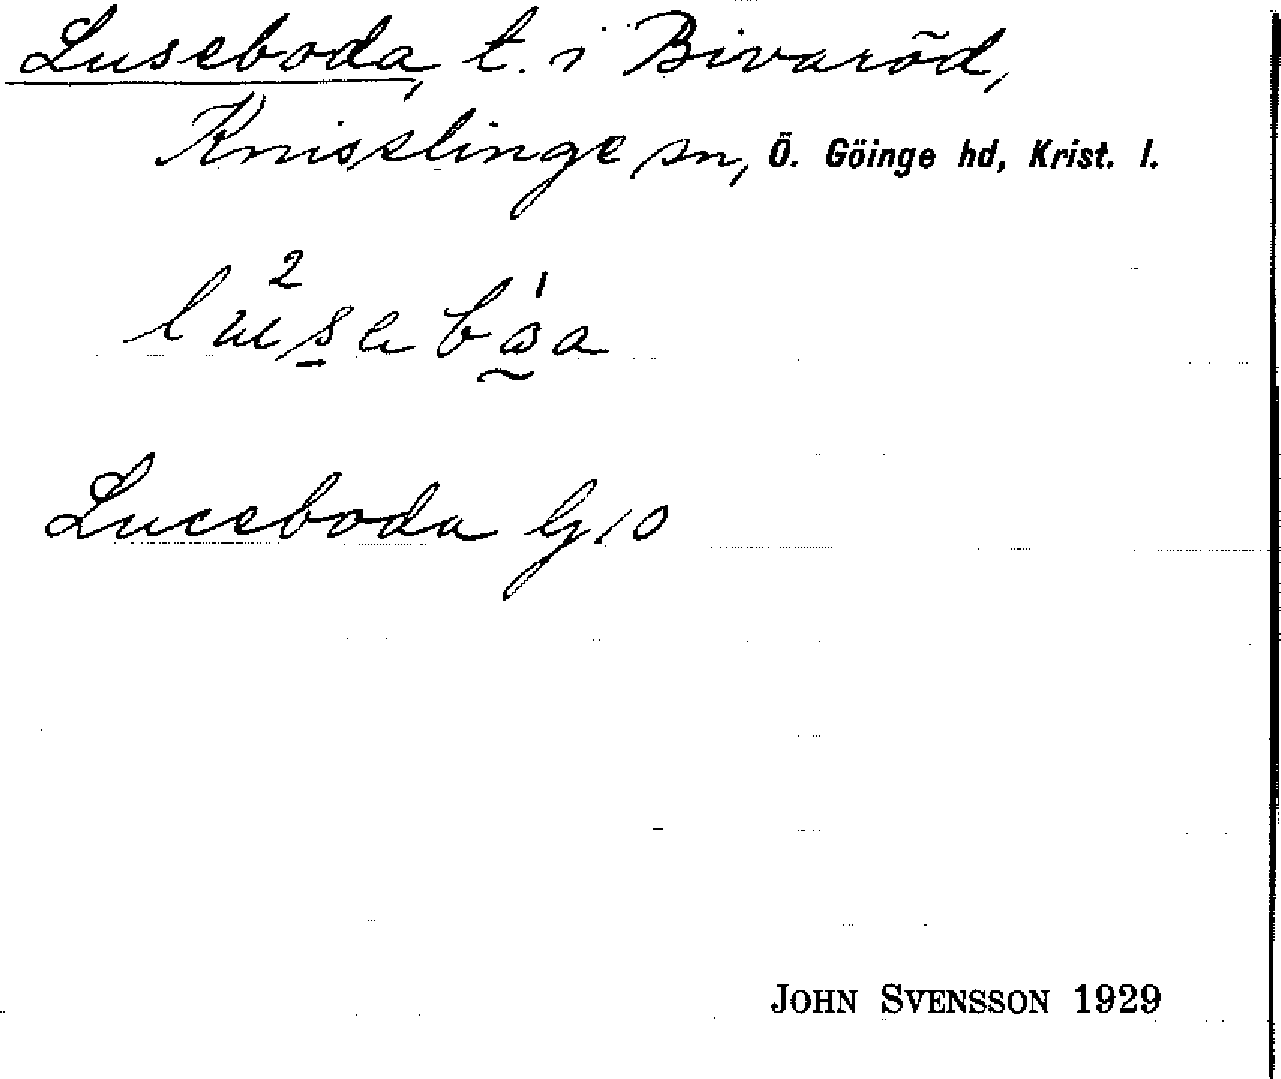 Luseboda, t. i Bivaröd,
Knisslinge sn, Ö. Göinge hd, Krist. l.
Luceboda G10
JOHN SVENSSON 1929